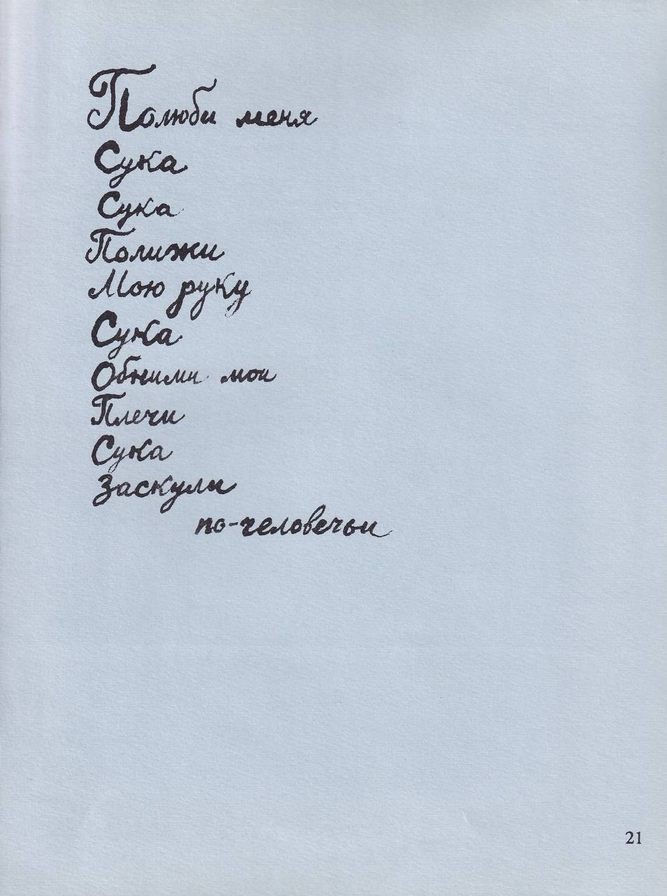 Полюби меня
Сука
Сука
Полижи
Мою руку
Сука
Обними мои
Плечи
Сука
Заскули
по-человечьи
21